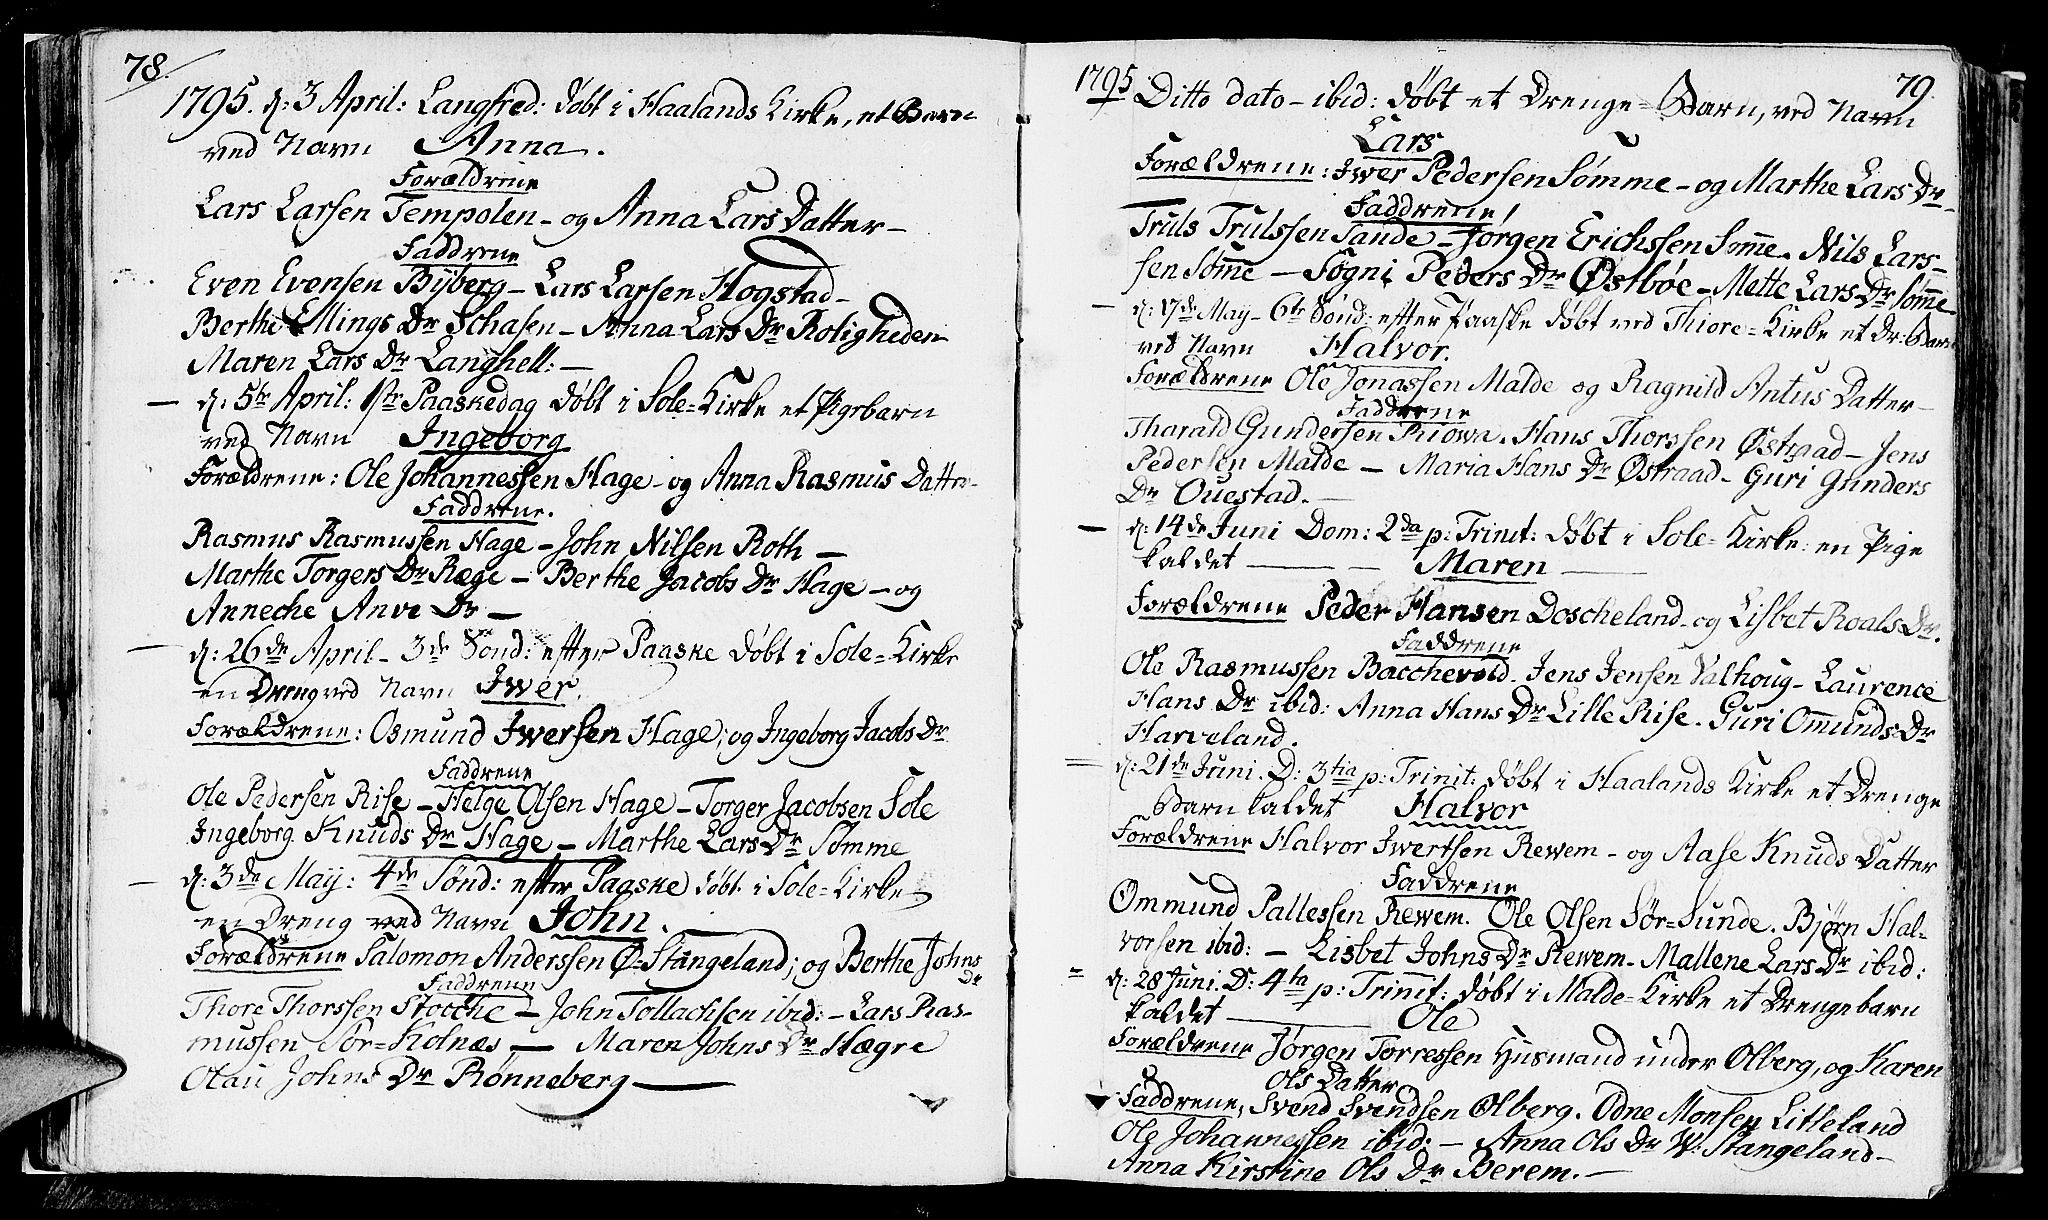 78.
1795. d: 3 April: Langfred: døbt i Haalands Kirke, et Barn
ved Navn Anna.
Forældrene
Lars Larsen Tempolen - og Anna Lars Datter -
Faddrene
Even Evensen Bÿberg - Lars Larsen Hogstad -
Berthe Ellings Dr Schasen - Anna Lars Dr Roligheden
Maren Lars Dr Langhell: -
- d: 5te April: 1ste Paaskedag døbt i Sole=Kirke et Pigebarn
ved Navn Ingeborg
Forældrene: Ole Johannessen Hage - og Anna Rasmus Datter -
Faddrene.
Rasmus Rasmussen Hage - John Nilsen Roth -
Marthe Torgers Dr Ræge - Berthe Jacobs Dr Hage - og
Anneche Anve Dr -
- d: 26de April - 3de Sønd: efter Paaske døbt i Sole=Kirke
en Dreng ved Navn Iwer.
Forældrene: Osmund Iwersen Hage; og Ingeborg Jacobs Dr
Faddrene
Ole Pedersen Rise - Helge Olsen Hage - Torger Jacobsen Sole
Ingeborg Knuds Dr Hage - Marthe Lars Dr Sømme
- d: 3de Maÿ: 4de Sønd: efter Paaske døbt i Sole=Kirke
en Dreng ved Navn John.
Forældrene Salomon Anderssen Ø-Stangeland; og Berthe Johns
Dr
Faddrene
Thore Thorssen Stocche - John Tollachsen ibid: - Lars Ras-
mussen Sør=Kolnæs - Maren Johns Dr Hægre
Olau Johns Dr Rønneberg -
1795
79.
Ditto dato - ibid: døbt et Drenge=Barn, ved Navn
Lars
Forældrene: Iwer Pedersen Sømme - og Marthe Lars Dr -
Faddrene!
Truls Trulssen Tande - Jørgen Erichssen Søme. Nils Lars-
sen Søme - Søgni Peders Dr Østbøe - Mette Lars Dr Søme
- d: 17de May - 6te Sønd: efter Paaske døbt ved Thiore=Kirke et Dr: Barn
ved Navn Halvor.
Forældrene Ole Jonassen Malde og Ragnild Antus Datter -
Faddrene
Tharald Gundersen Riowa. Hans Thorssen Østraad - Jens
Pedersen Malde - Maria Hans Dr Østraad - Guri Gunders
Dr Ouestad. -
- d: 14de Juni Dom: 2da p: Trinit: døbt i Sole=Kirke: en Pige
kaldet - - Maren -
Forældrene Peder Hansen Doscheland - og Lisbet Roals Dr.
Faddrene
Ole Rasmussen Bacchevold - Jens Jensen Valhoug - Laurence
Hans Dr ibid: Anna Hans Dr Lille Rise. Guri Omunds Dr
Harveland.
= d: 21de Juni. D: 3tia p: Trinit: døbt i Haalands Kirke et Drenge
Barn kaldet Halvor
Forældrene Halvor Iwertsen Rewem - og Aase Knuds Datter
Faddrene
Ommund Pallessen Rewem. Ole Olsen Sør=Sunde. Bjørn Hal-
vorsen ibid: - Lisbet Johns Dr Rewem - Mallene Lars Dr ibid:
= d: 28 Juni. D: 4ta p: Trinit: døbt i Malde=Kirke et Drengebarn
kaldet - Ole
Forældrene Jørgen Torressen Husmand under Olberg, og Karen
Ols Datter
Faddrene, Svend Svendsen Olberg. Odne Monsen Litleland
Ole Johannessen ibid: - Anna Ols Dr W: Stangeland -
Anna Kirstine Ols Dr Berem. -